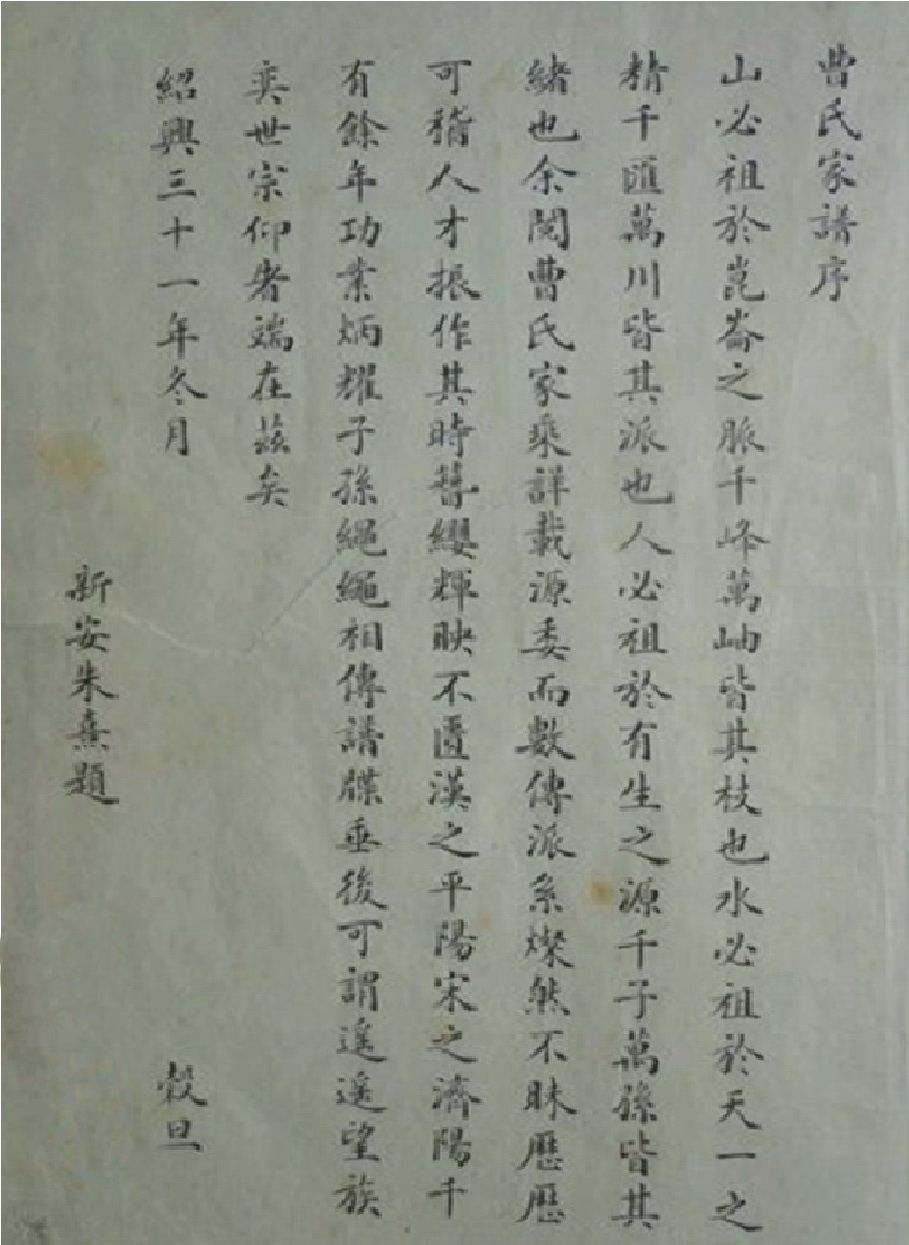 曹氏家譜序
山必祖於崑崙之脈千峰萬岫皆其枝也水必祖於天一之
精千匯萬川皆其派也人必祖於有生之源千子萬孫皆其
緒也余閱曹氏家乘詳載源委而數傳派系燦然不昧歷歷
可稽人才振作其時簪纓輝映不匱漢之平陽宋之濟陽千
有餘年功業炳耀子孫繩繩相傳譜牒垂後可謂遙遙望族
奕世宗仰者端在茲矣
紹興三十一年冬月 穀旦
新安朱熹題